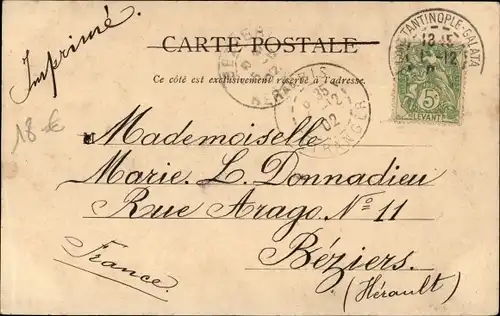 Imprimé
CARTE POSTALE
Ce côté est exclusivement réservé à l'adresse.
CONSTANTINOPLE-GALATA
5
LEVANT
18 €
02
Mademoiselle
Marie. L. Donnadieu
Rue Arago. Nº 11
Béziers.
(Hérault)
France.